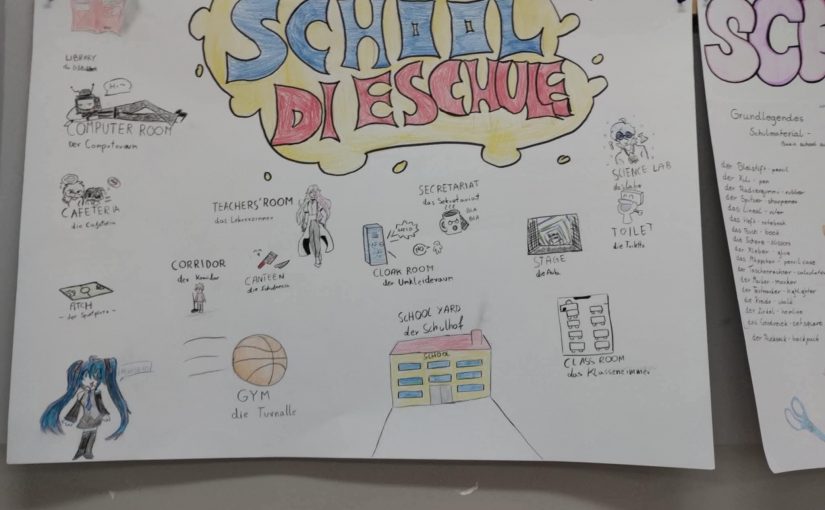 SCHOOL
DIESCHULE
LIBRARY
Hi~
COMPUTER ROOM
der Computerraum
CAFETERIA
die Cafeteria
TEACHERS' ROOM
das Lehrerzimmer
SECRETARIAT
das Sekretariat
BLA
BLA
SCIENCE LAB
TOILET
die Toilette
CORRIDOR
der Korridor
CANTEEN
CLOAK ROOM
der Umkleideraum
STAGE
die Aula
PITCH
- der Sportplatz -
SCHOOL YARD
der Schulhof
SCHOOL
CLASS ROOM
das Klassenzimmer
GYM
die Turnalle
Grundlegendes
Schulmaterial -
der Bleistift - pencil
der Kuli - pen
der Radiergummi - rubber
der Spitzer - sharpener
das Lineal - ruler
das Heft - notebook
das Buch - book
die Schere - scissors
der Kleber - glue
das Mäppchen - pencil case
der Taschenrechner - calculator
der Marker - marker
der Textmarker - highlighter
der Zirkel
der Rucksack - backpack